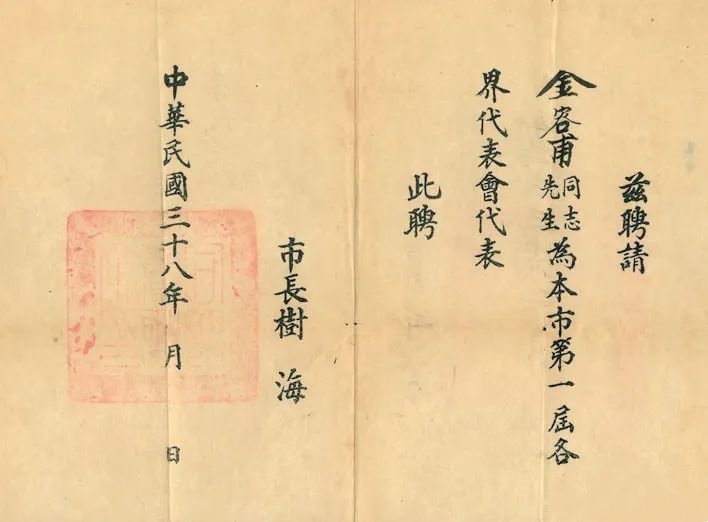 茲聘請
金容甫同志先生為本市第一屆各
界代表會代表
此聘
市長樹 海
中華民國三十八年 月 日